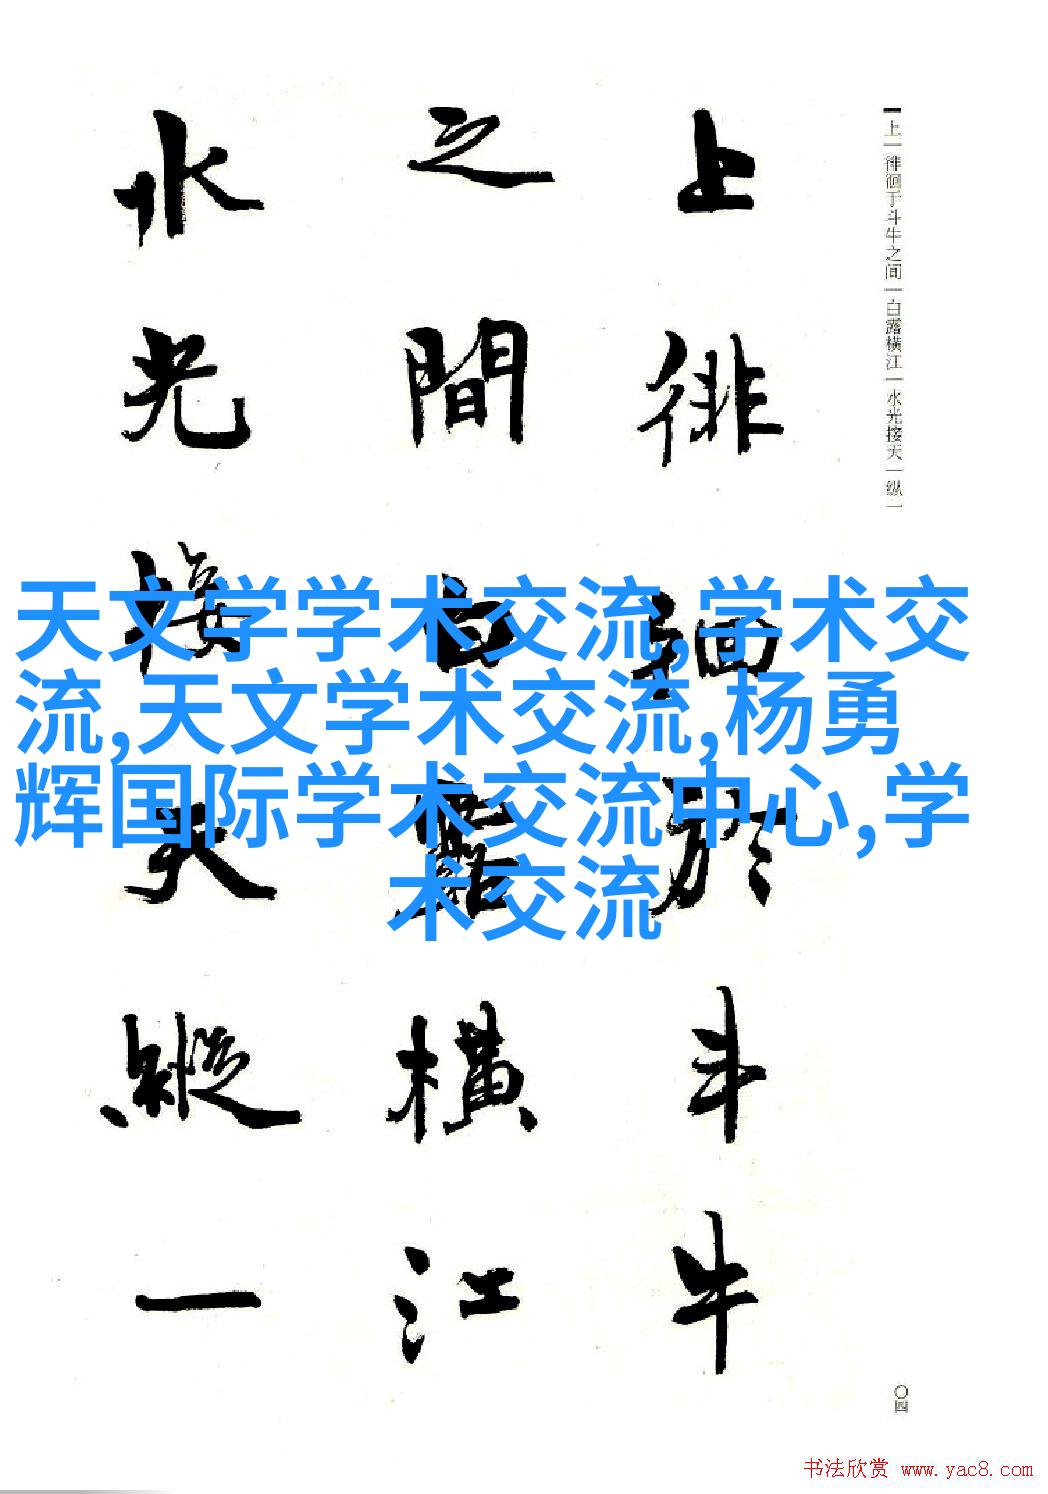 上徘徊於斗牛
之間白露橫江
水光接天縱一
上｜徘徊于斗牛之间｜白露横江｜水光接天｜纵一
天文学学术交流,学术交
流,天文学术交流,杨勇
辉国际学术交流中心,学
术交流
〇四
书法欣赏 www.yac8.com